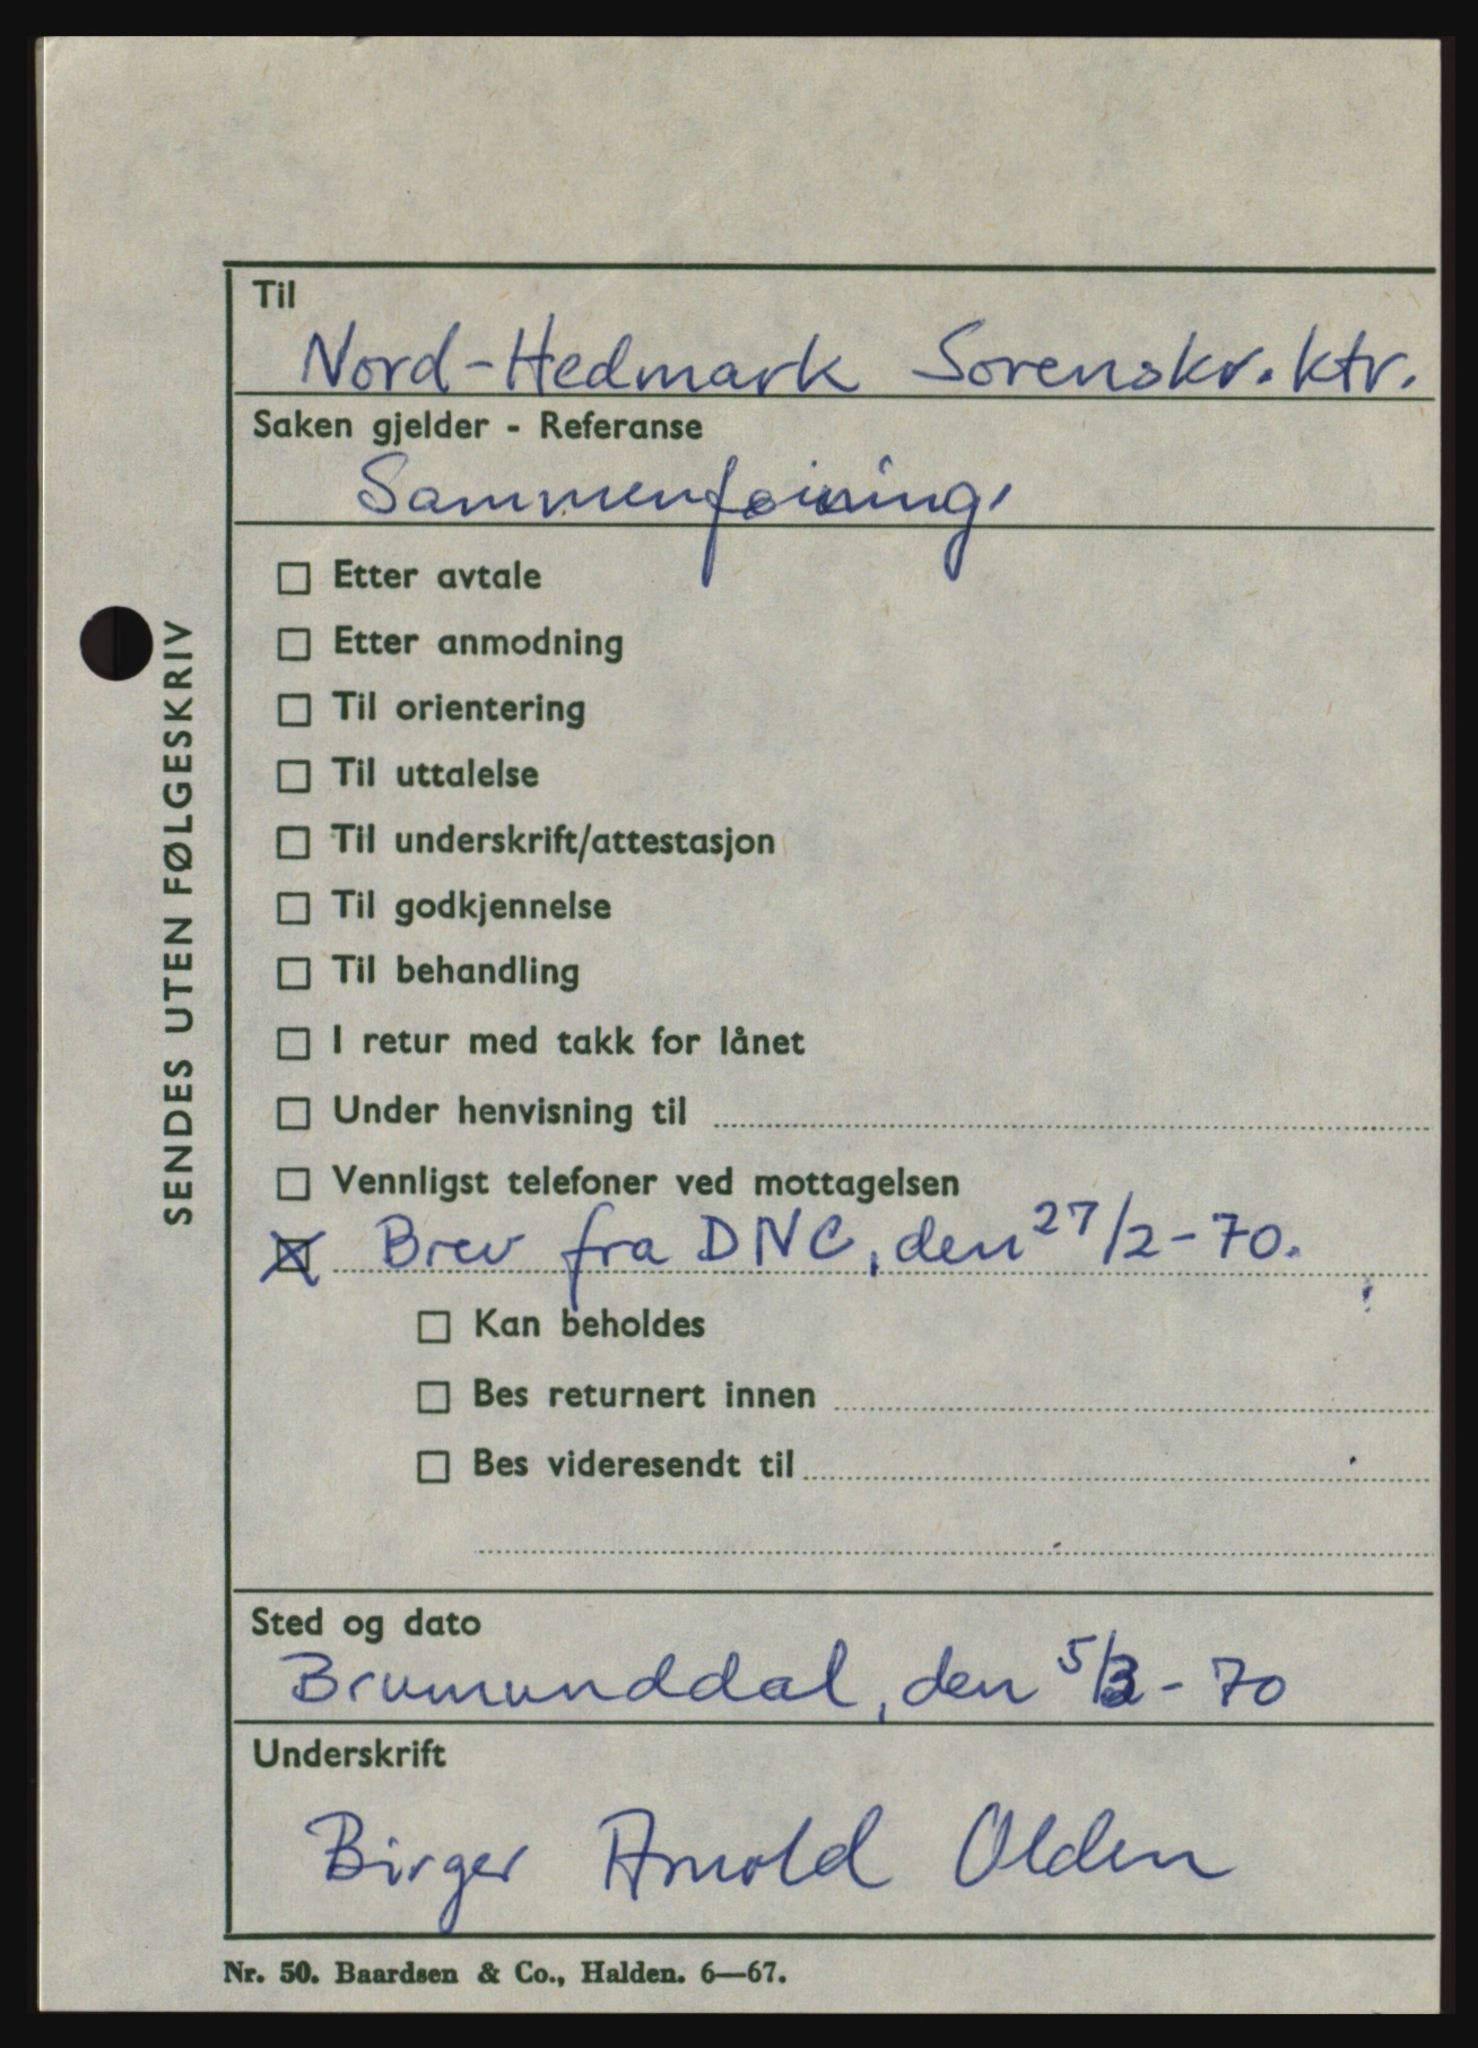 Til
Nord-Hedmark Sorenskr.ktr.
Saken gjelder - Referanse
Sammenføining,
SENDES UTEN FØLGESKRIV
☐ Etter avtale
☐ Etter anmodning
☐ Til orientering
☐ Til uttalelse
☐ Til underskrift/attestasjon
☐ Til godkjennelse
☐ Til behandling
☐ I retur med takk for lånet
☐ Under henvisning til
☐ Vennligst telefoner ved mottagelsen
☒ Brev fra DNC, den 27/2-70.
☐ Kan beholdes
☐ Bes returnert innen
☐ Bes videresendt til
Sted og dato
Brumunddal, den 5/3-70
Underskrift
Birger Arnold Olden
Nr. 50. Baardsen & Co., Halden. 6—67.